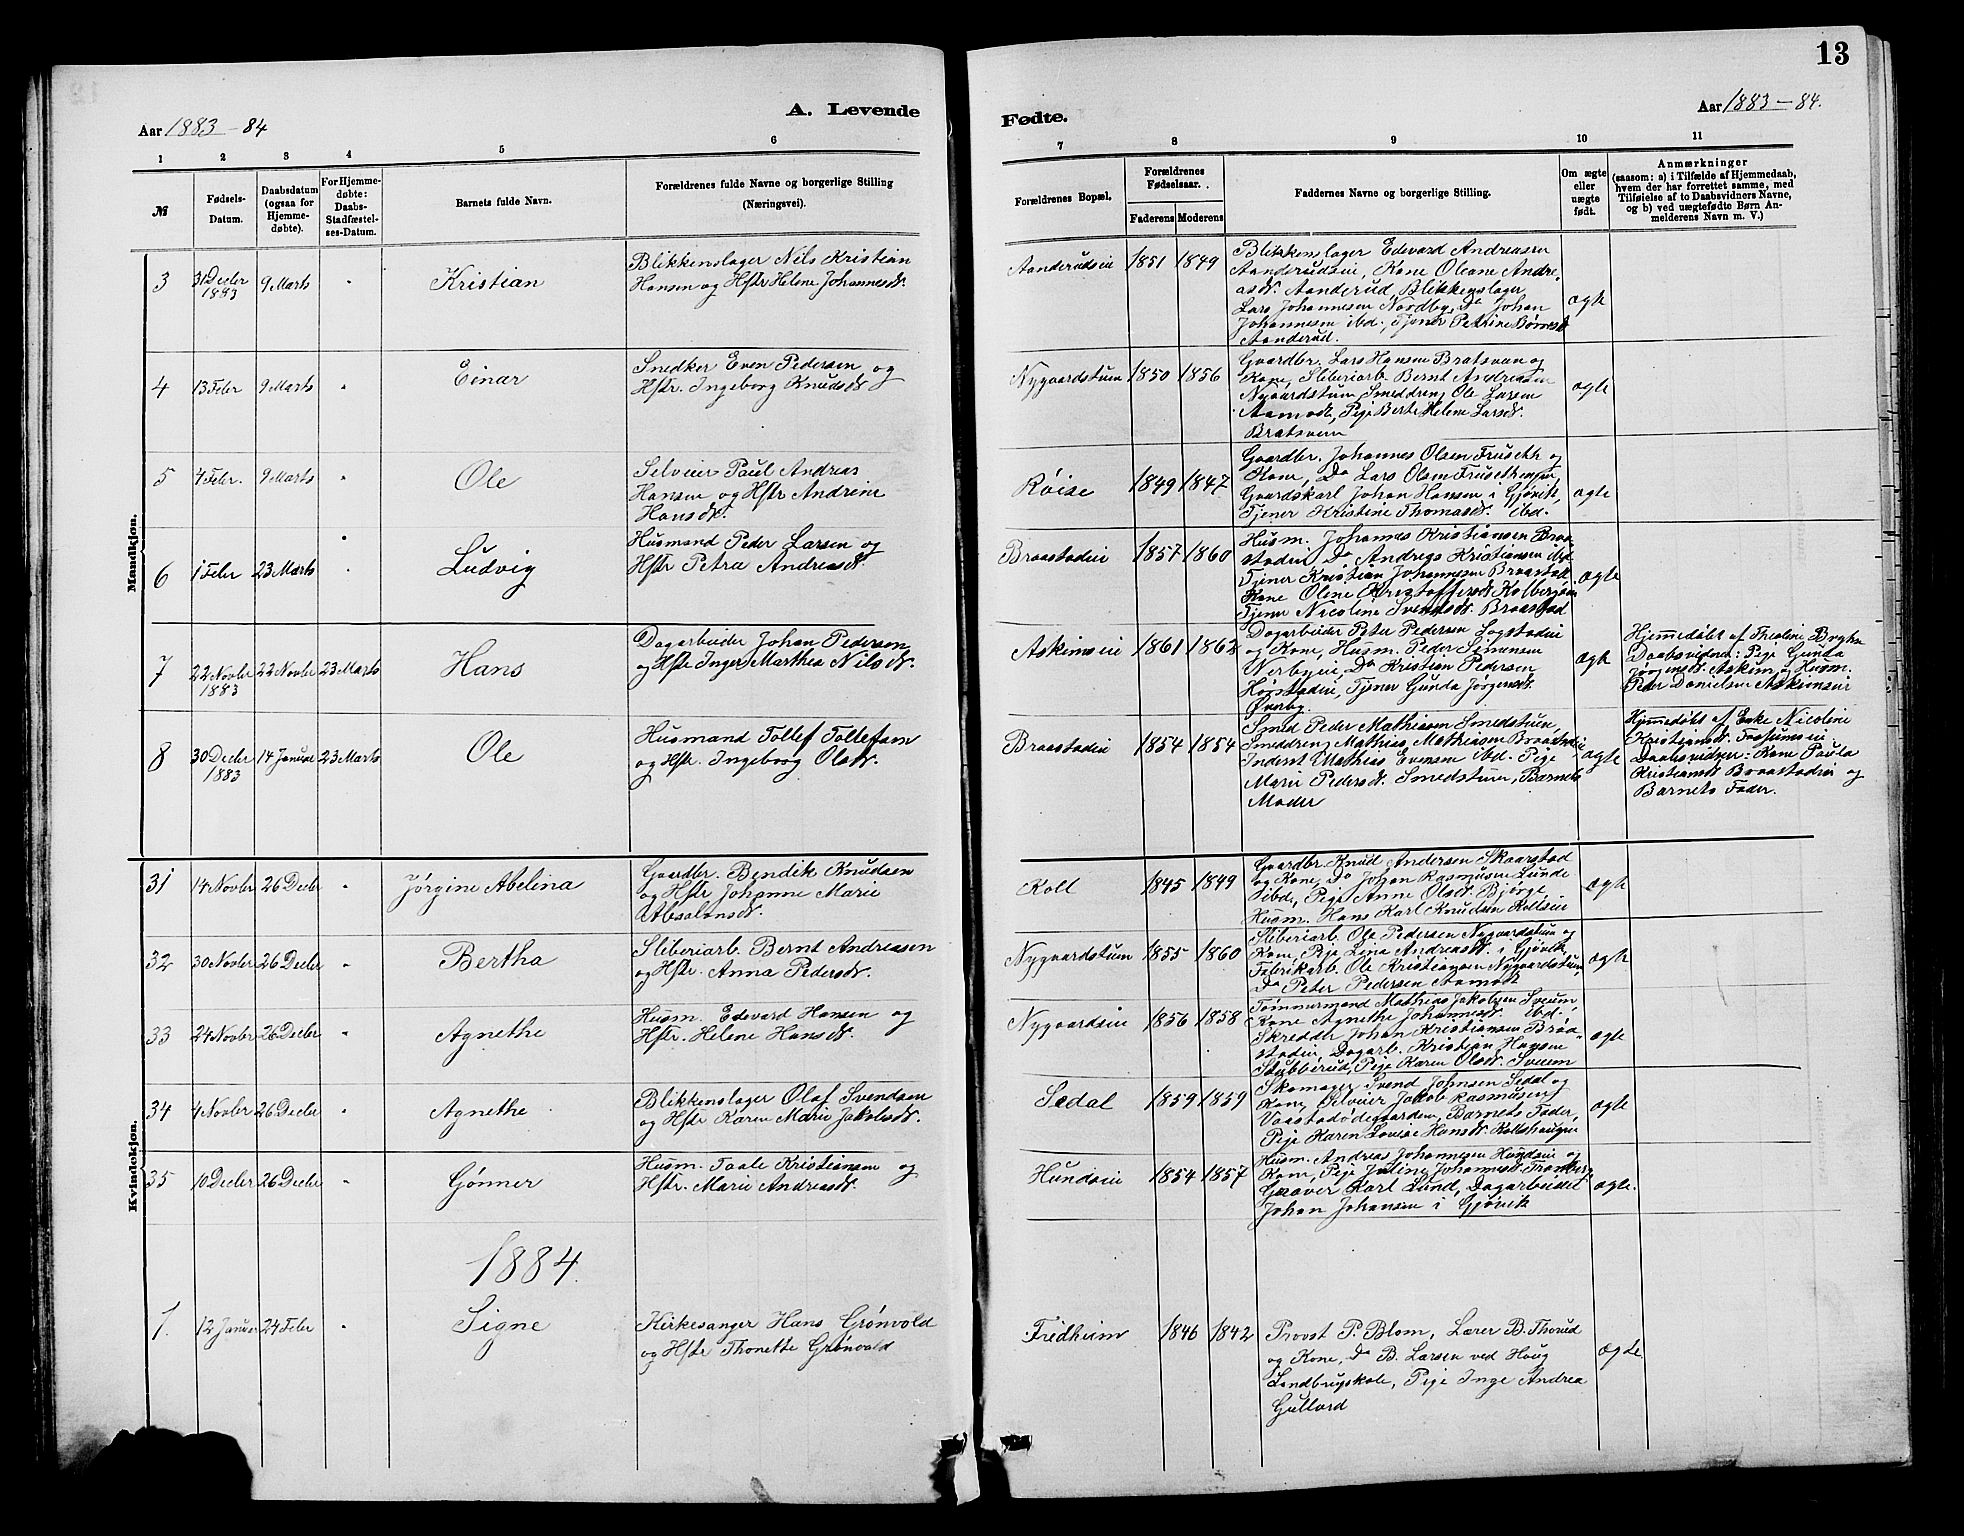 13
Aar 1883-84
A. Levende
Fødte.
Aar 1883-84.
1 2 3 4 5 6 7 8 9 10 11
№
Fødsels-
Datum.
Daabsdatum
(ogsaa for
Hjemme-
døbte).
For Hjemme-
døbte:
Daabs-
Stadfæstel-
ses-Datum.
Barnets fulde Navn.
Forældrenes fulde Navne og borgerlige Stilling
(Næringsvei).
Forældrenes Bopæl.
Forældrenes
Fødselsaar.
Faderens Moderens
Faddernes Navne og borgerlige Stilling.
Om ægte
eller
uægte
født.
Anmærkninger
(saasom: a) i Tilfælde af Hjemmedaab,
hvem der har forrettet samme, med
Tilføielse af to Daabsvidners Navne,
og b) ved uægtefødte Børn An-
melderens Navn m. V.)
Mandkjøn.
3
31 Decbr
1883
9 Marts
"
Kristian
Blikkenslager Nils Kristian
Hansen og Hstr Helene Johannesdr.
Aanderudseie
1851 1849
Blikkenslager Edevard Andreassen
Aanderudseie, Kone Oleane Andre-
asdr. Aanderud, Blikkenslager
Lars Johannesen Nordby, Do Johan
Johannesen ibd., Tjener Petrine Børresdr
Aanderud.
ægte
4
13 Febr
9 Marts
"
Einar
Snedker Even Pedersen og
Hstr. Ingeborg Knudsdr
Nygaardstuen
1850 1856
Gaardbr. Lars Hansen Bratsveen og
Kone, Sliberiarb. Bernt Andreasen
Nygaardstuen, Smeddreng Ole Larsen
Aamodt, Pige Berte Helene Larsdr.
Bratsveen
ægte
5
4 Febr.
9 Marts
"
Ole
Selveier Paul Andreas
Hansen og Hstr Andrine
Hansdr.
Røise
1849 1847
Gaardbr. Johannes Olsen Fruseth
og Kone, Do Lars Olsen Frusethengen,
Gaardskarl Johan Hansen i Gjøvik,
Tjener Kristine Thomasdr. ibd.
ægte
6
1 Febr
23 Marts
"
Ludvig
Husmand Peder Larsen og
Hstr Petra Andreasdr.
Braastadeie
1857 1860
Husm. Johannes Kristiansen Braa-
stadeie, Do Andreas Kristiansen ibd.
Tjener Kristian Johannesen Braastad.
Kone Olene Kristoffersdr Kolbergseie
Tjener Nicoline Svendsdr. Braastad
ægte
7
22 Novbr
1883
22 Novbr
23 Marts
Hans
Dagarbeider Johan Pedersen
og Hstr Inger Marthea Nilsdr.
Askimseie
1861 1862
Dagarbeider Peter Pedersen Logstadeie
og Kone, Husm. Peder Simensen
Nerbyeie, Do Kristian Pedersen
Hørstadeie, Tjener Gunda Jørgensdr.
Øverby.
ægte
Hjemmedøbt af Theoline Bryhn
Daabsvidner: Pige Gunda
Jørgensdr. Askim og Husm.
Peder Danielsen Askimseie
8
30 Decbr
1883
14 Januar
23 Marts
Ole
Husmand Tollef Tollefsen
og Hstr. Ingeborg Olsdr.
Braastadeie
1854 1854
Smed Peder Mathiasen Smedstuen,
Smeddreng Mathias Mathiasen Braastadeie
Inderst Mathias Evensen ibd. Pige
Marie Pedersdr. Smedstuen, Barnets
Moder
ægte
Hjemmedøbt af Enke Nicoline
Kristiansdr. Fossumseie.
Daabsvidner: Kone Paula
Kristiansdr Braastadeie og
Barnets Fader.
Kvindekjøn.
31
14 Novbr
26 Decbr
"
Jørgine Abelina
Gaardbr. Bendik Knudsen
og Hstr Johanne Marie
Absalonsdr.
Koll
1845 1849
Gaardbr Knud Andersen Skaarstad
og Kone, Do Johan Rasmusen Lunde
ibd., Pige Anne Olsdr. Bjørge
Husm. Hans Karl Knudsen Kollseie
ægte
32
30 Novbr
26 Decbr
"
Bertha
Sliberiarb. Bernt Andreasen
og Hstr. Anna Pedersdr.
Nygaardstuen
1855 1860
Sliberiarb. Ole Pedersen Nygaardstuen og
Kone, Pige Lina Andreasdr. i Gjøvik,
Fabrikarb. Ole Kristiansen Nygaardstuen,
Do Peter Pedersen Aamodt
ægte
33
24 Novbr
26 Decbr
"
Agnethe
Husm. Edevard Hansen og
Hstr. Helene Hansdr.
Nygaardseie
1856 1858
Tømmermand Mathias Jakobsen Sveum,
Kone Agnethe Johannesdr. ibd.,
Skredder Johan Kristiansen Braa-
stadeie, Dagarb. Kristian Hansen
Stubberud, Pige Karen Olsdr. Sveum
ægte
34
4 Novbr
26 Decbr
"
Agnethe
Blikkenslager Olaf Svendsen
og Hstr Karen Marie Jakobsdr.
Sedal
1859 1859
Skomager Svend Johnsen Sedal og
Kone, Selveier Jakob Rasmusen
Vaastadødegaarden, Barnets Fader,
Pige Karen Lovise Hansdr. Kollshaugen
ægte
35
10 Decbr
26 Decbr
"
Gønner
Husm. Taale Kristiansen og
Hstr. Marie Andreasdr.
Hundseie
1854 1857
Husm. Andreas Johannesen Hundseie og
Kone, Pige Juline Johannesdr. Tranberg,
Graver Karl Lund, Dagarbeider
Johan Johansen i Gjøvik
ægte.
1884.
1.
12 Januar
24 Febr
"
Signe
Kirkesanger Hans Grønvold
og Hstr Thonette Grønvold
Fredheim
1846 1842
Provst P. Blom, Lærer B. Thorud
og Kone, Do B. Larsen ved Houg
Landbrugskole, Pige Inge Andrea
Gullord
ægte.